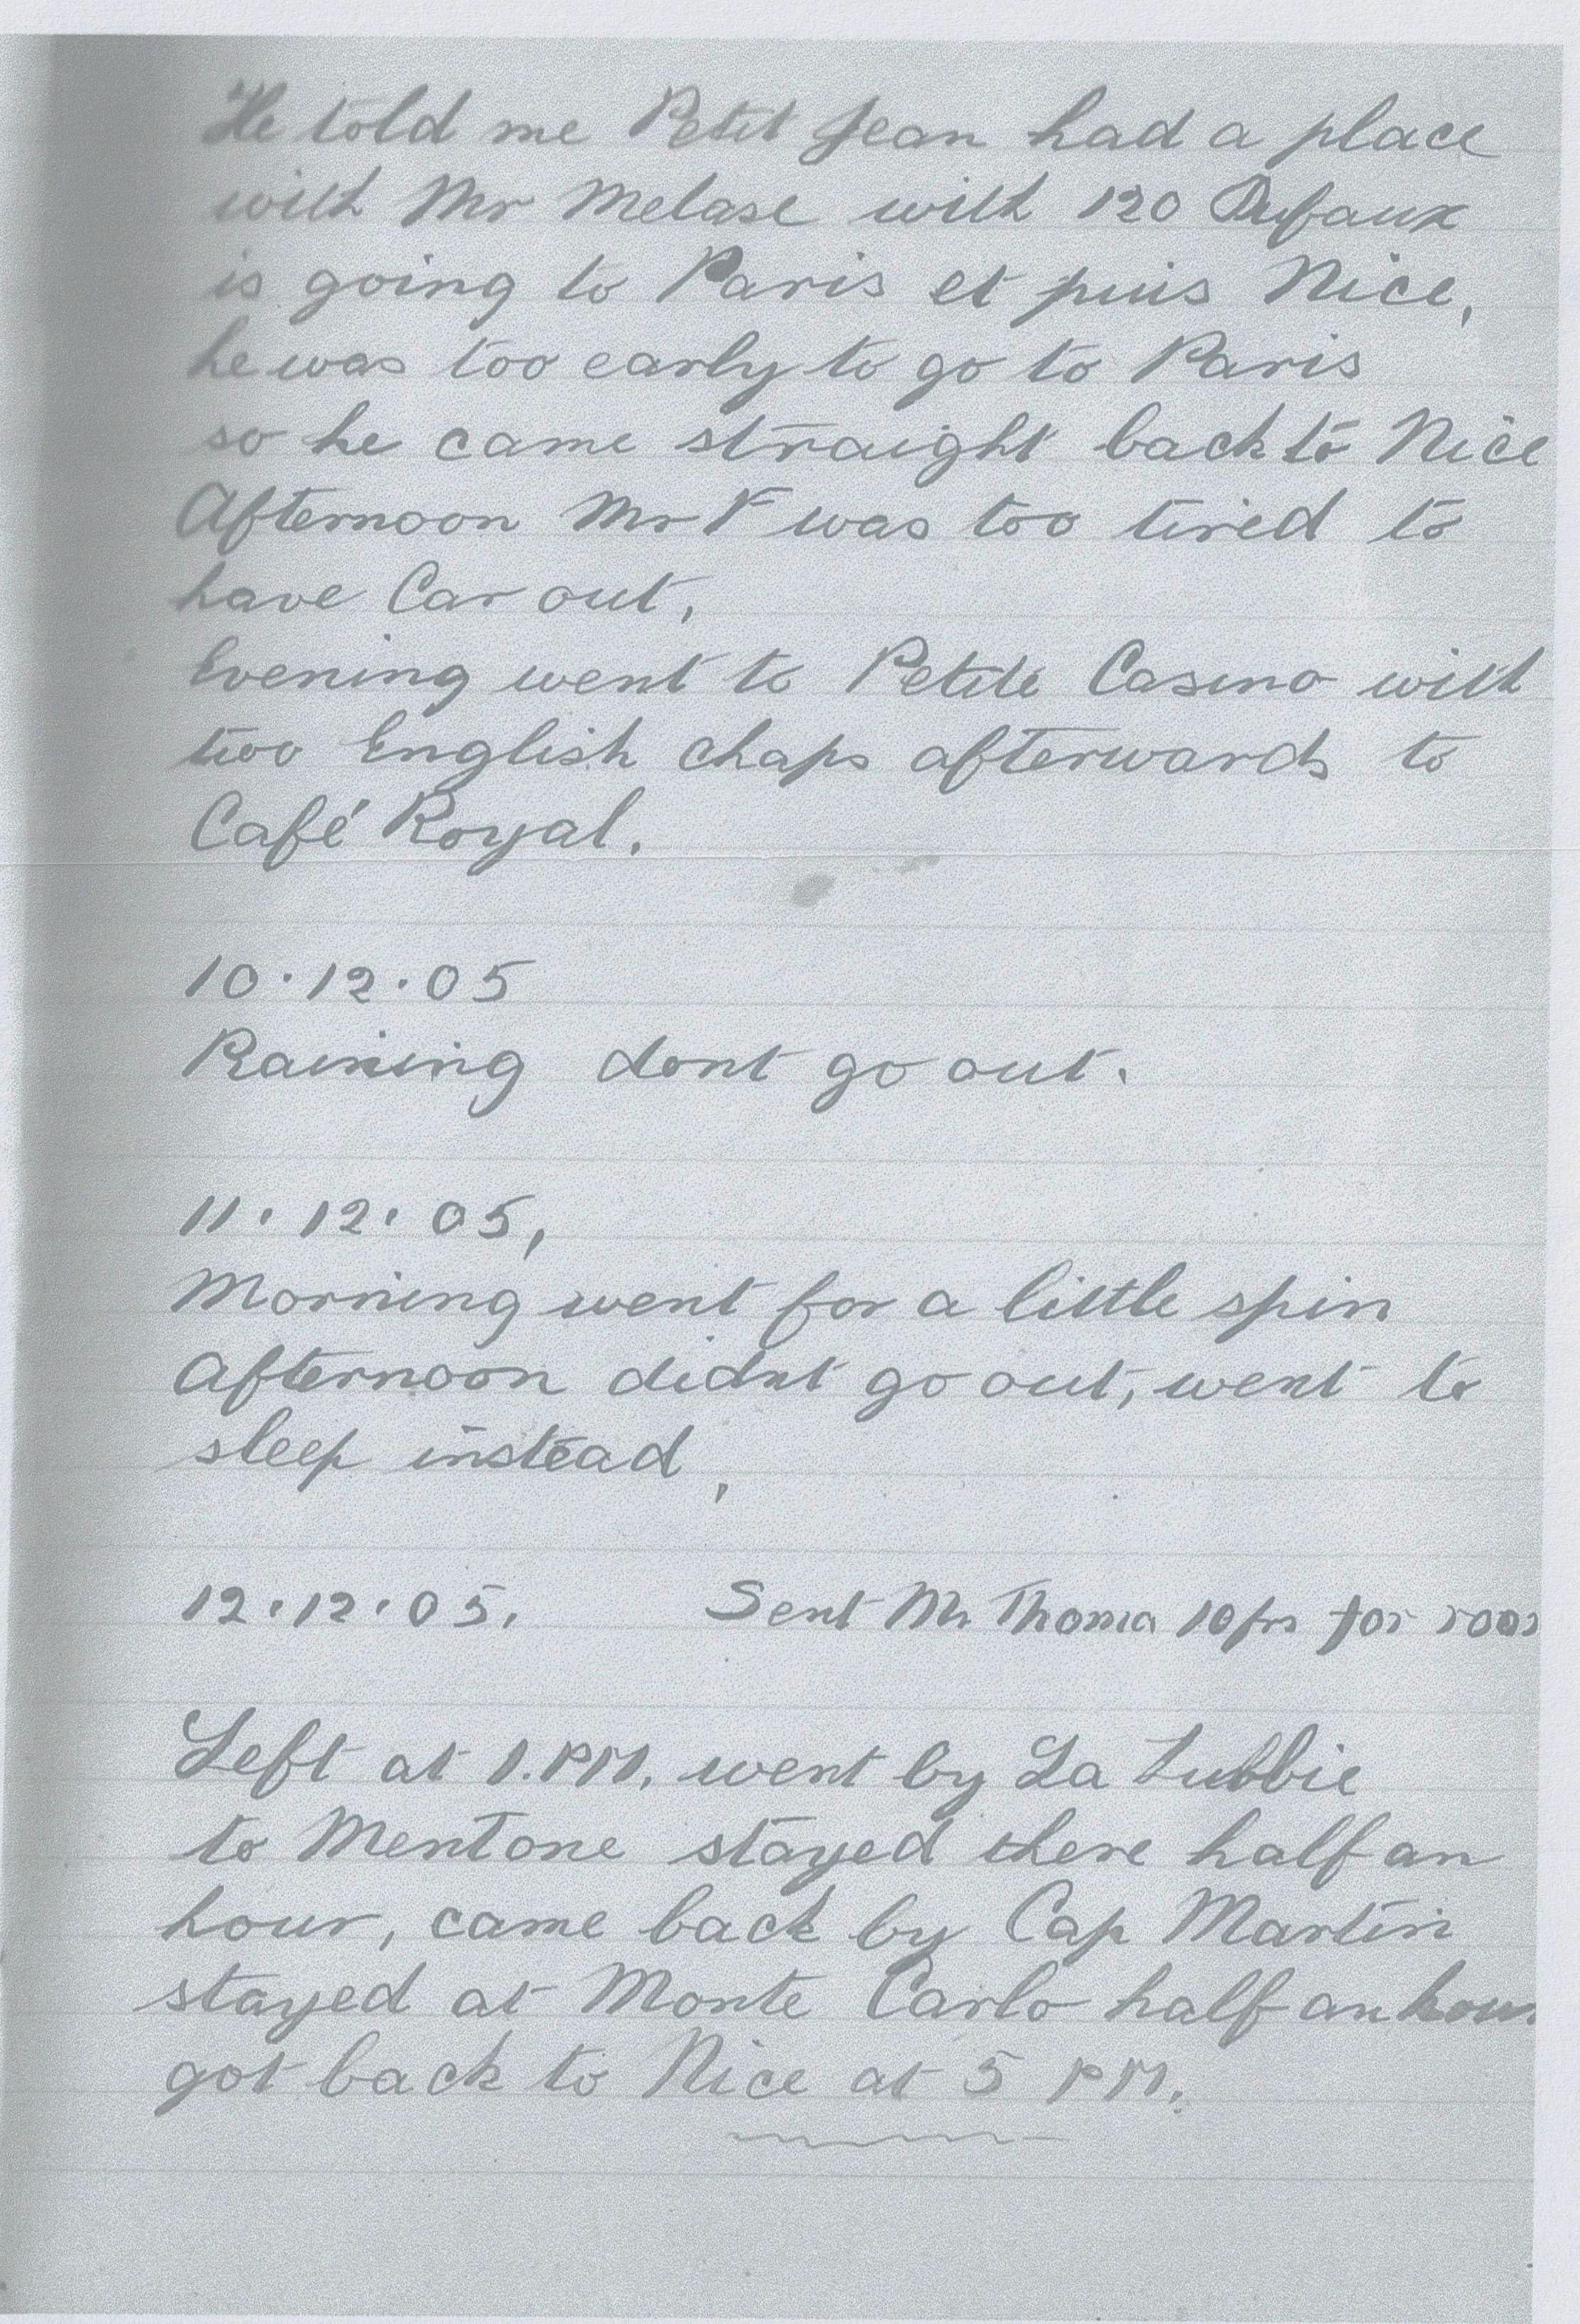 He told me Petit Jean had a place
with Mr Melase with 120 Dufaux
is going to Paris et puis Nice,
he was too early to go to Paris
so he came straight back to Nice
Afternoon Mr F was too tired to
have Car out,
Evening went to Petite Casino with
two English chaps afterwards to
Café Royal.
10.12.05
Raining dont go out.
11.12.05,
Morning went for a little spin
Afternoon didnt go out, went to
sleep instead,
12.12.05. Sent Mr Thoma 10 frs for
Left at 1.PM. went by La Tubbie
to Mentone stayed there half an
hour, came back by Cap Martin
stayed at Monte Carlo half an hour
got back to Nice at 5 PM.